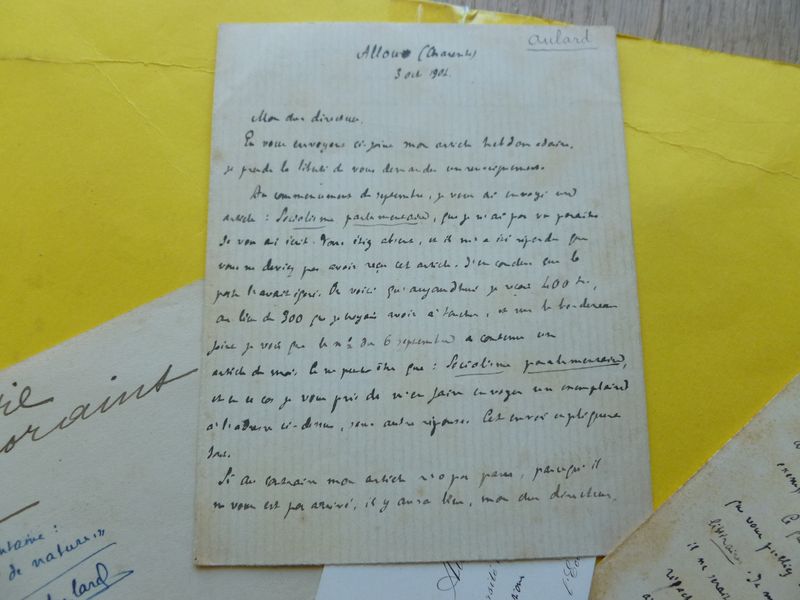 aulard
Alloue (Charente)
3 oct 1904.
Mon cher directeur,
En vous envoyant ci-joint mon article hebdomadaire,
je prends la liberté de vous demander un renseignement.
Au commencement de septembre, je vous ai envoyé un
article : Socialisme parlementaire, que je n'ai pas vu paraître.
Je vous ai écrit. Vous étiez absent, et il m'a été répondu que
vous ne deviez pas avoir reçu cet article. J'en conclus que la
poste l'avait égaré. Or voici qu'aujourd'hui je reçois 400 fr.,
au lieu de 300 que je croyais avoir à toucher, et sur le bordereau
joint je vois que le n° du 6 septembre a contenu un
article de moi. Ce ne peut être que : Socialisme parlementaire,
et en ce cas je vous prie de m'en faire envoyer un exemplaire
à l'adresse ci-dessus, sans autre réponse. Cet envoi expliquera
tout.
Si au contraire mon article n'a pas paru, parce qu'il
ne vous est pas arrivé, il y aura lieu, mon cher directeur,
de nature"
que vous publiez
littéraires. Je m
il me serait